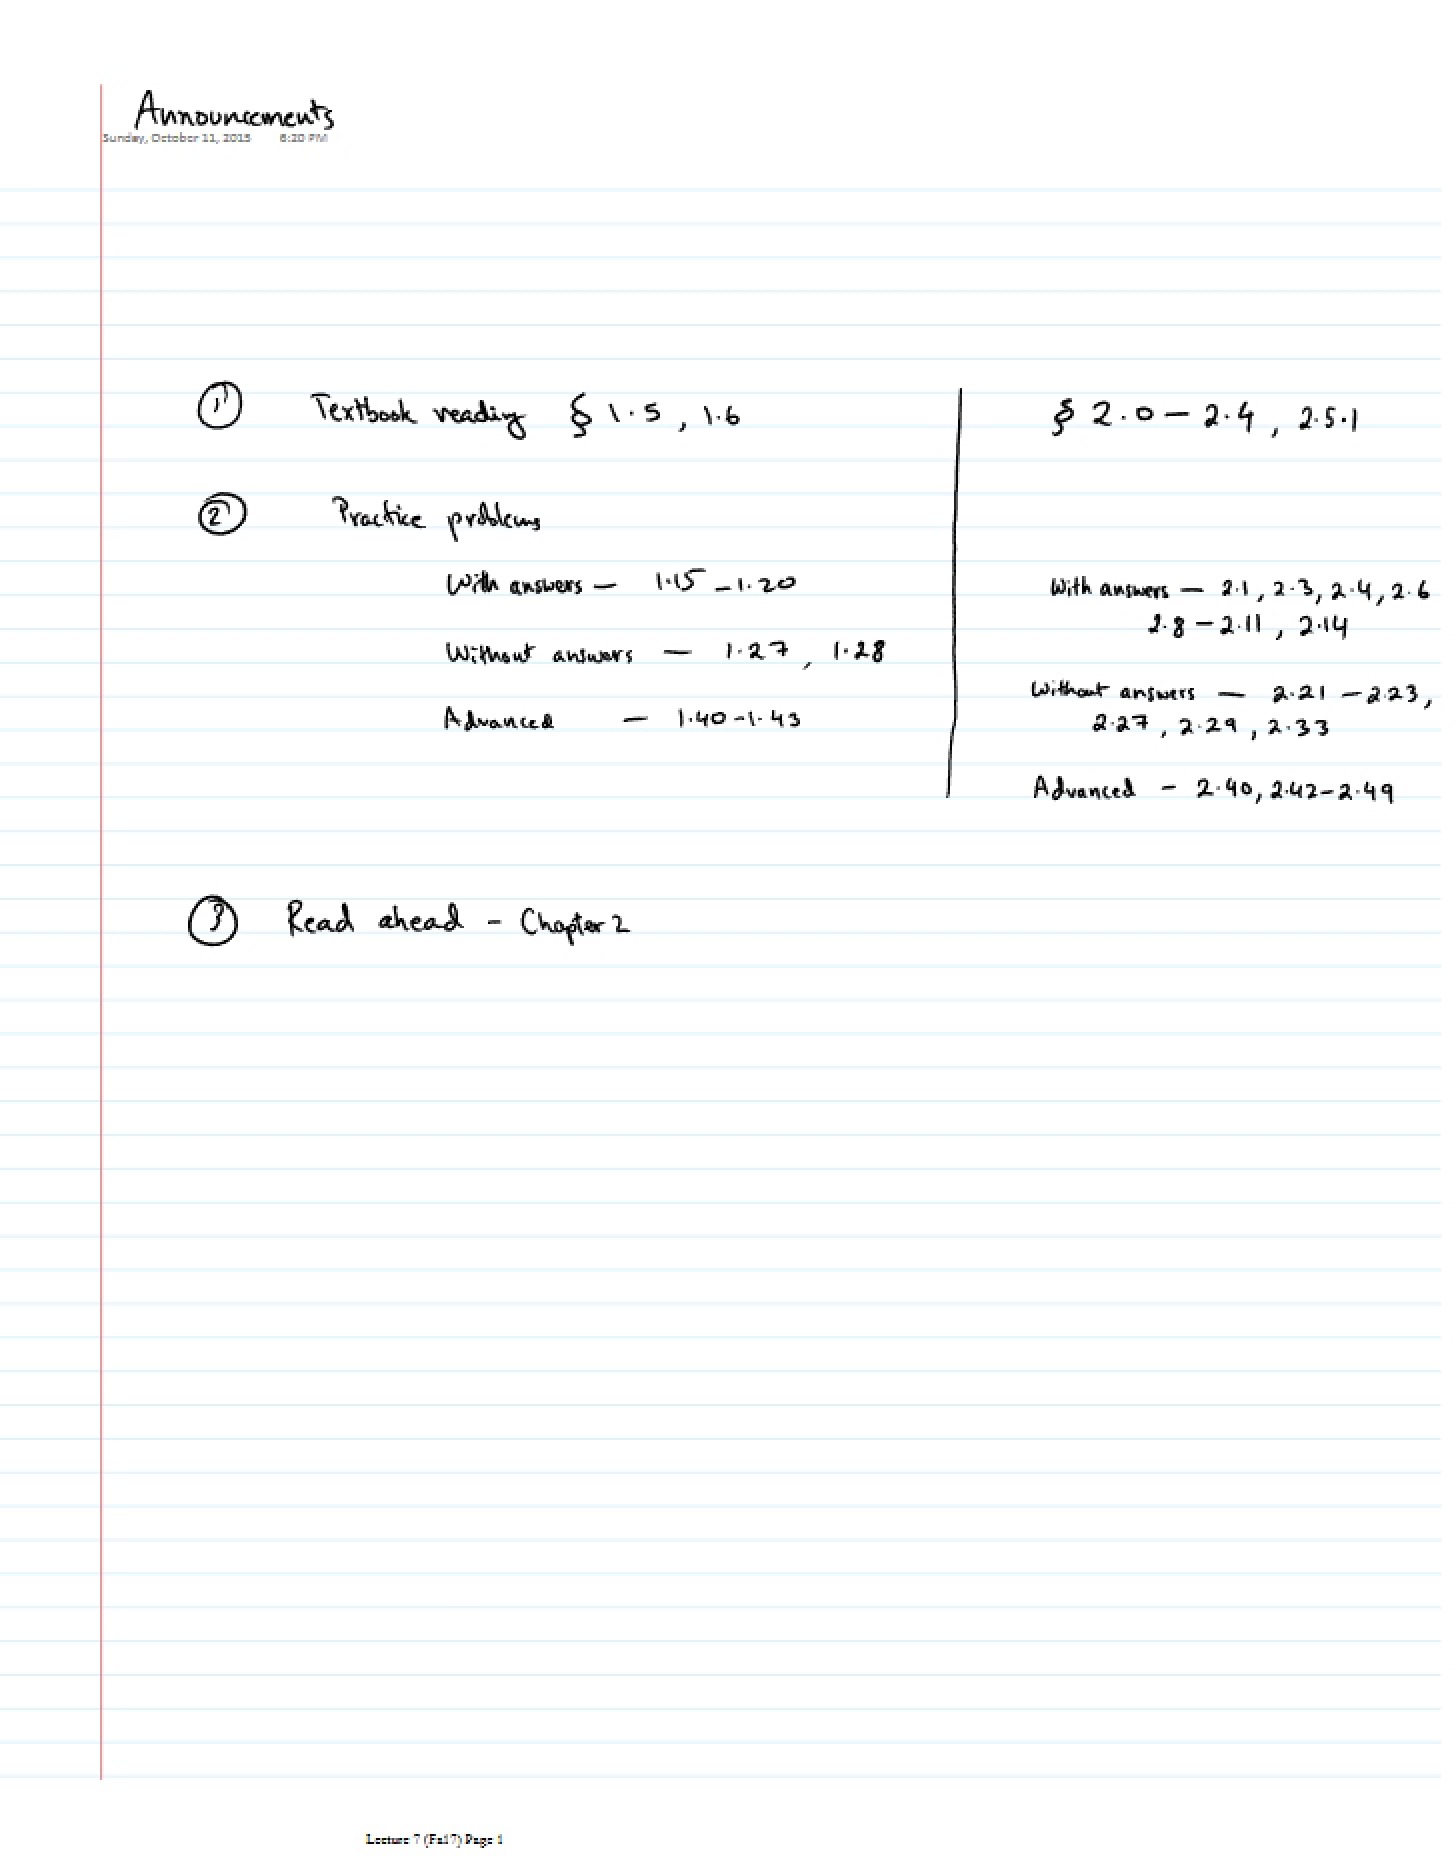 Announcements
Sunday, October 11, 2015 6:20 PM
① Textbook reading § 1.5, 1.6
§ 2.0 - 2.4, 2.5.1
② Practice problems
With answers - 1.15 - 1.20
Without answers - 1.27, 1.28
Advanced - 1.40 - 1.43
With answers - 2.1, 2.3, 2.4, 2.6
2.8 - 2.11, 2.14
Without answers - 2.21 - 2.23,
2.27, 2.29, 2.33
Advanced - 2.40, 2.42 - 2.49
③ Read ahead - Chapter 2
Lecture 7 (Fa17) Page 1